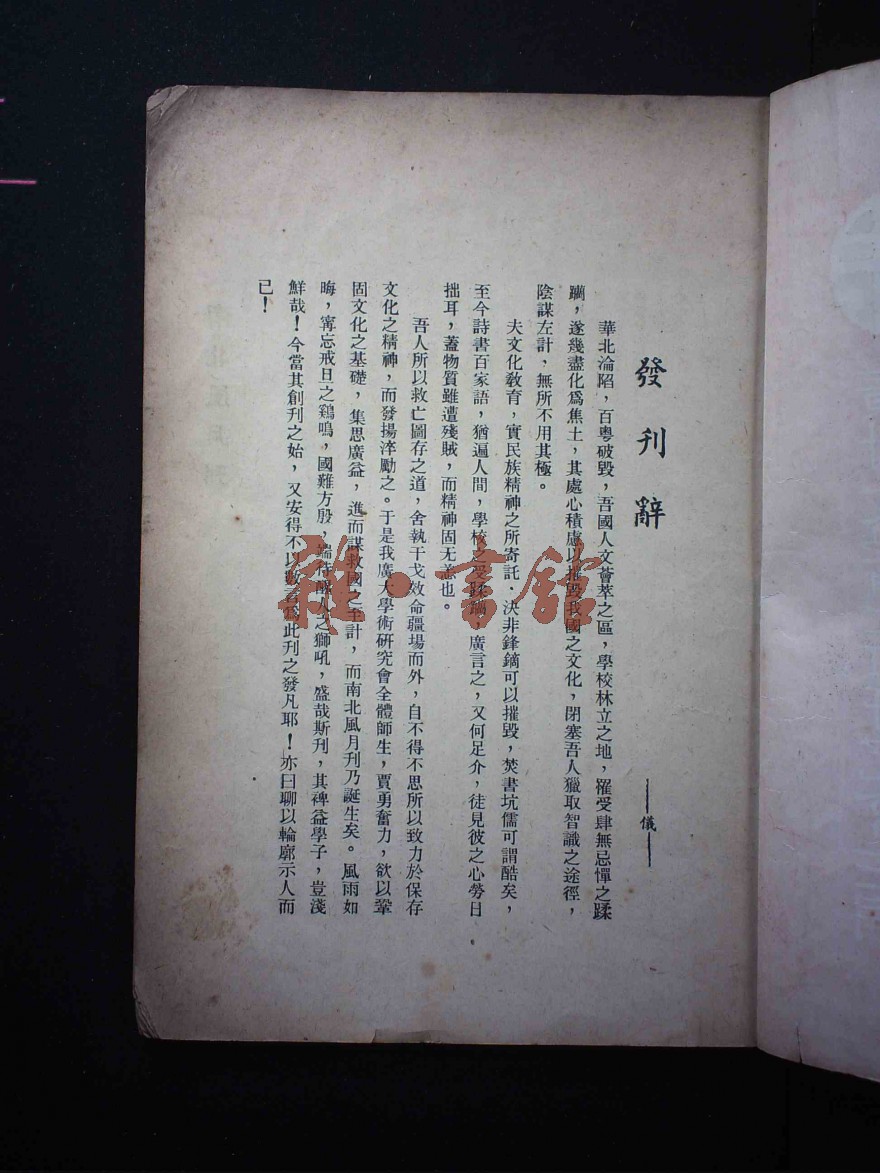 發刊辭
——儀——
華北淪陷，百粵破毀，吾國人文薈萃之區，學校林立之地，罹受肆無忌憚之蹂
躪，遂幾盡化爲焦土，其處心積慮以摧毀我國之文化，閉塞吾人獵取智識之途徑，
陰謀左計，無所不用其極。
夫文化教育，實民族精神之所寄託．決非鋒鏑可以摧毀，焚書坑儒可謂酷矣，
至今詩書百家語，猶遍人間，學校之受蹂躪，廣言之，又何足介，徒見彼之心勞日
拙耳，蓋物質雖遭殘賊，而精神固无恙也。
吾人所以救亡圖存之道，舍執干戈效命疆場而外，自不得不思所以致力於保存
文化之精神，而發揚淬勵之。于是我廣大學術研究會全體師生，賈勇奮力，欲以鞏
固文化之基礎，集思廣益，進而謀救國之至計，而南北風月刊乃誕生矣。風雨如
晦，寗忘戒旦之鷄鳴，國難方殷，端待醒人之獅吼，盛哉斯刊，其裨益學子，豈淺
鮮哉！今當其創刊之始，又安得不以數言爲此刊之發凡耶！亦曰聊以輪廓示人而
已！
雅·書館